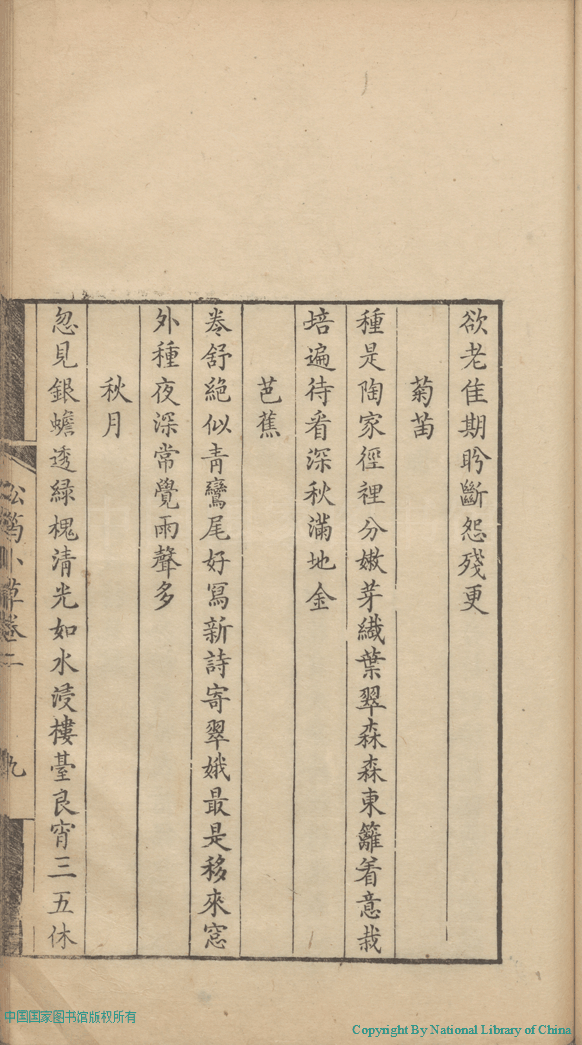 欲老佳期盻斷怨殘更
菊苗
種是陶家徑裡分嫩芽纎葉翠森森東籬着意栽
培遍待看深秋滿地金
芭蕉
卷舒絕似青鸞尾好寫新詩寄翠娥最是移來窓
外種夜深常覺雨聲多
秋月
忽見銀蟾透綠槐清光如水浸樓臺良宵三五休
松蔦小草卷二
九
中国国家图书馆版权所有
Copyright By National Library of China